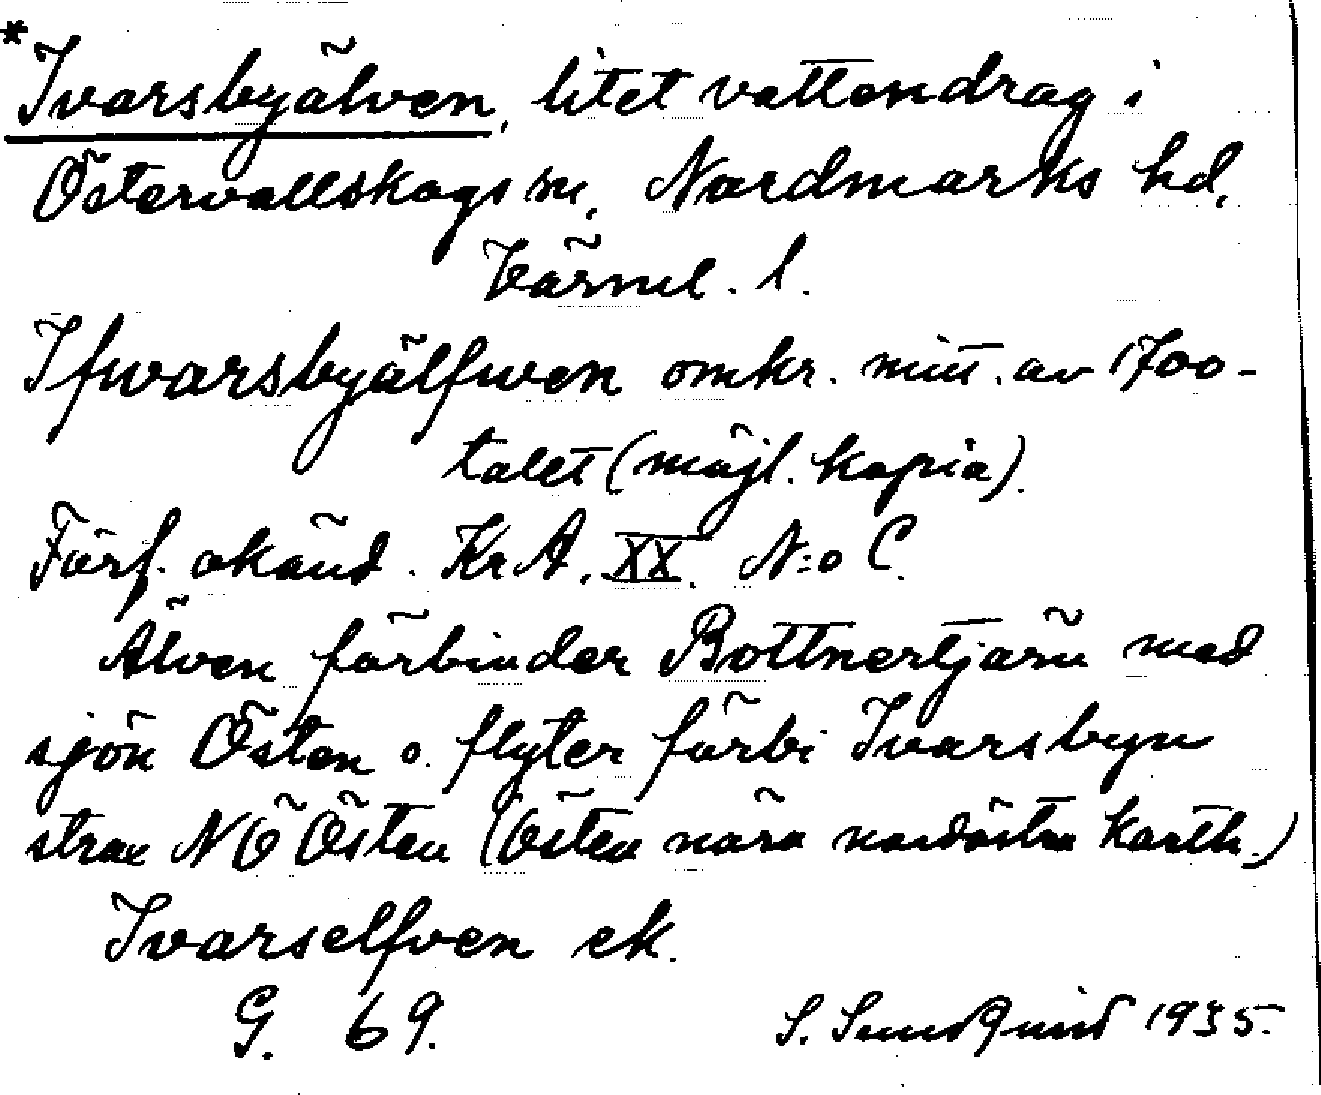 *Ivarsbyälven, litet vattendrag i
Östervallskogs sn, Nordmarks hd,
Värml. l.
Ifwarsbyälfwen omkr. mitt. av 1700-
talet (möjl. kopia).
Förf. okänd. Kr A. XX. N:o C.
Älven förbinder Bottnertjärn med
sjön Östen o. flyter förbi Ivarsbyn
strax NÖ Östen (Östen nära nordöstra kartk.)
Ivarselfven ek.
G. 69. S. 1935.